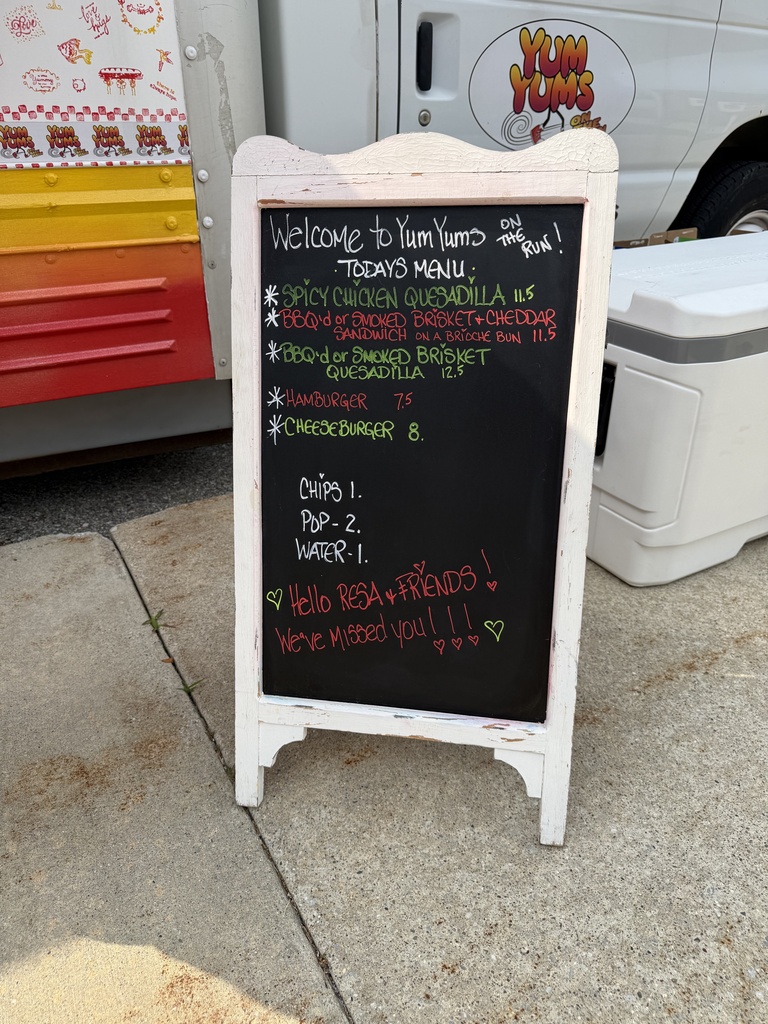 YUM
YUM'S
ON
YUM
YUM'S
YUM
YUM'S
YUM
YUM'S
YUM
YUM'S
Welcome to YumYums ON THE RUN!
·TODAYS MENU·
*SPICY CHICKEN QUESADILLA 11.5
*BBQ'd or SMOKED BRISKET + CHEDDAR
SANDWICH ON A BRIOCHE BUN 11.5
*BBQ'd or SMOKED BRISKET
QUESADILLA 12.5
*HAMBURGER 7.5
*CHEESEBURGER 8.
CHIPS 1.
POP - 2.
WATER - 1.
♡ Hello RESA + FRIENDS!
We've Missed you!!! ♡